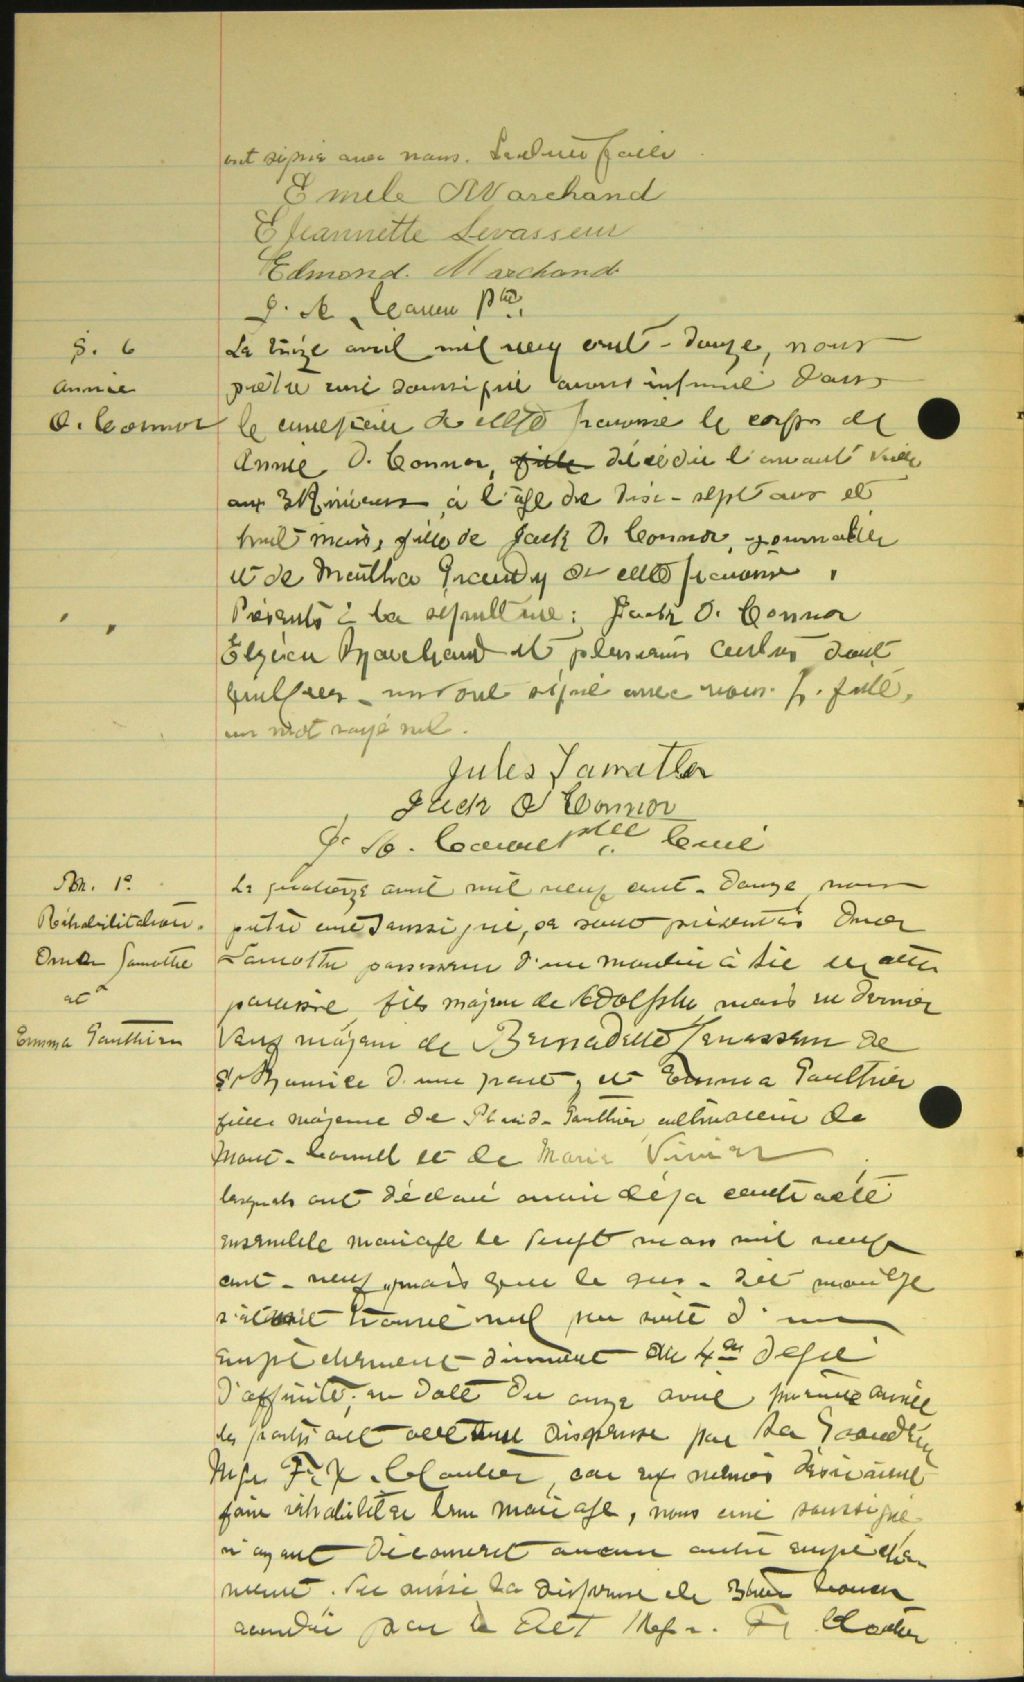 ont signé avec nous. Lecture faite.
Emile Marchand
E Jeannette Levasseur
Edmond. Marchand
J. A. Caron Ptre
S. 6
Annie
O. Connor
Le treize avril mil neuf cent-douze, nous
prêtre curé soussigné avons inhumé dans
le cimetière de cette paroisse le corps de
Annie O. Connor, fille décédée l'avant veille
aux 3 Rivières à l'âge de dix-sept ans et
huit mois, fille de Jack O. Connor, journalier
et de Martha de cette paroisse.
Présents à la sépulture: Jack O. Connor
Elzéar Marchand et plusieurs autres dont
quelques-uns ont signé avec nous. L. faite.
un mot rayé nul.
Jules Lamothe
Jack O Connor
J. A. Caron ptre Curé
M. 1°
Réhabilitation.
Omer Lamothe
et
Emma Gauthier
Le quatorze avril mil neuf cent-douze, nous
prêtre curé soussigné, se sont présentés Omer
Lamothe possesseur d'un moulin à scie de cette
paroisse fils majeur de Adolphe mais en dernier
veuf majeur de Bernadette Levasseur de
St Maurice d'une part, et Emma Gauthier
fille majeure de Gauthier, cultivateur de
Mont-Carmel et de Marie Vivier
lesquels ont déclaré avoir déjà contracté
ensemble mariage le vingt mars mil neuf
cent-neuf, mais que le sus-dit mariage
s'était trouvé nul par suite d'un
empêchement dirimant du 4me degré
d'affinité; en date du onze avril même année
les parties ont obtenu dispense par Sa Grandeur
Mgr F. X. Cloutier, car eux mêmes désiraient
faire réhabiliter leur mariage, nous curé soussigné
n'ayant découvert aucun autre empêche
ment. Vu aussi la dispense de 3 bans
accordée par le dit Mgr. F. Cloutier